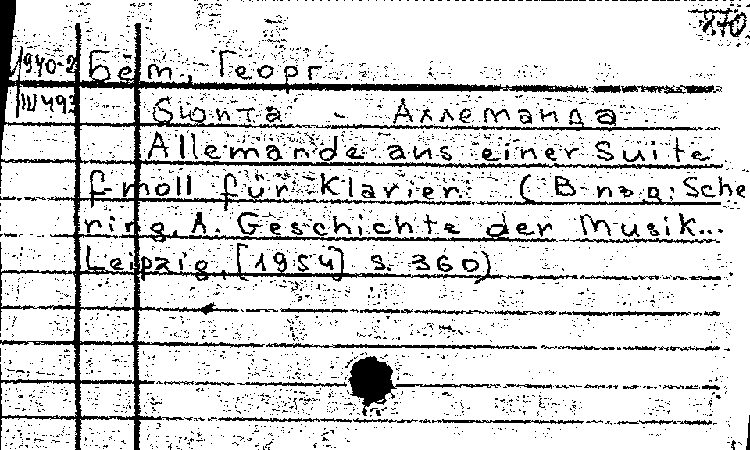 270
1940-2 Бём, Георг
III 493 Сюита - Аллеманда
Allemande aus einer Suite
f-moll für Klavier. (В изд: Sche
ring, A. Geschichte der Musik...
Leipzig, [1954] S. 360)